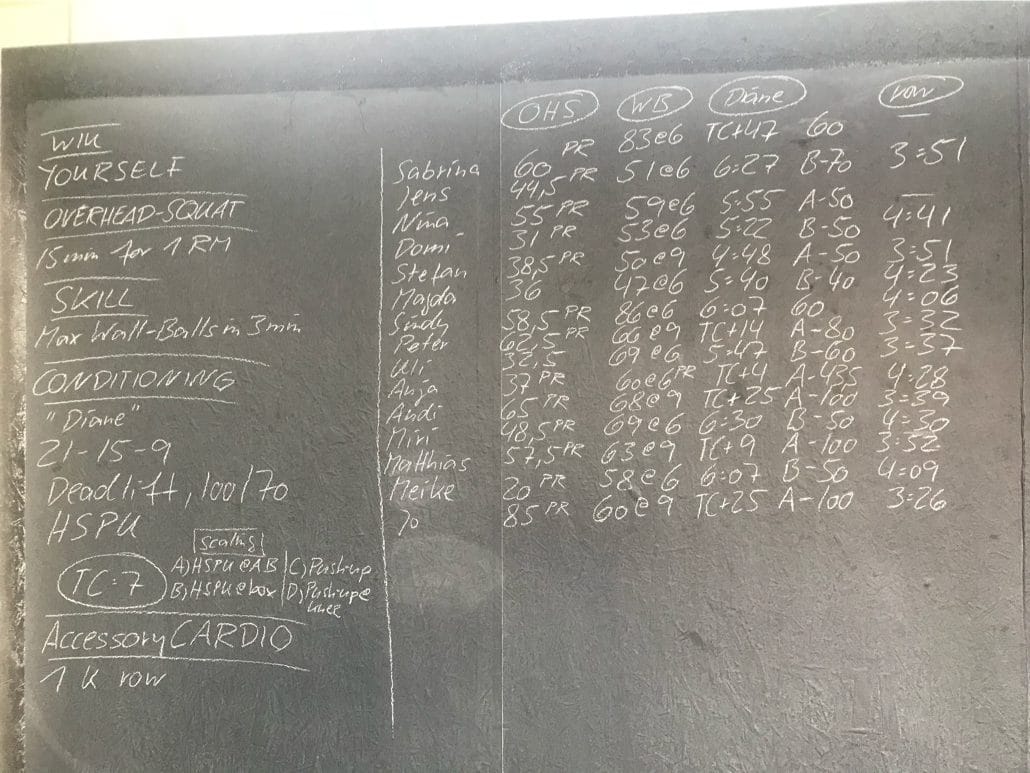 WILL
YOURSELF
OVERHEAD-SQUAT
15min for 1RM
SKILL
Max Wall-Balls in 3min
CONDITIONING
"Diane"
21-15-9
Deadlift, 100/70
HSPU
TC:7
Scaling
A) HSPU@AB | C) Push-up
B) HSPU@box | D) Push-up@
knee
Accessory CARDIO
1 K row
OHS WB Diane row
Sabrina 60 PR 83@6 TC+47 60 —
Jens 44,5 PR 51@6 6:27 B-70 3:51
Nina 55 PR 59@6 5:55 A-50 —
Domi 31 PR 53@6 5:22 B-50 4:41
Stefan 38,5 PR 50@9 4:48 A-50 3:51
Magda 36 47@6 5:40 B-40 4:23
Sindy 58,5 PR 86@6 6:07 60 4:06
Peter 62,5 PR 66@9 TC+14 A-80 3:32
Uli 32,5 69@6 5:47 B-60 3:37
Anja 37 PR 60@6 PR TC+4 A-435 4:28
Andi 65 PR 68@9 TC+25 A-100 3:39
Miri 48,5 PR 69@6 6:30 B-50 4:30
Matthias 57,5 PR 63@9 TC+9 A-100 3:52
Meike 20 PR 58@6 6:07 B-50 4:09
Jo 85 PR 60@9 TC+25 A-100 3:26